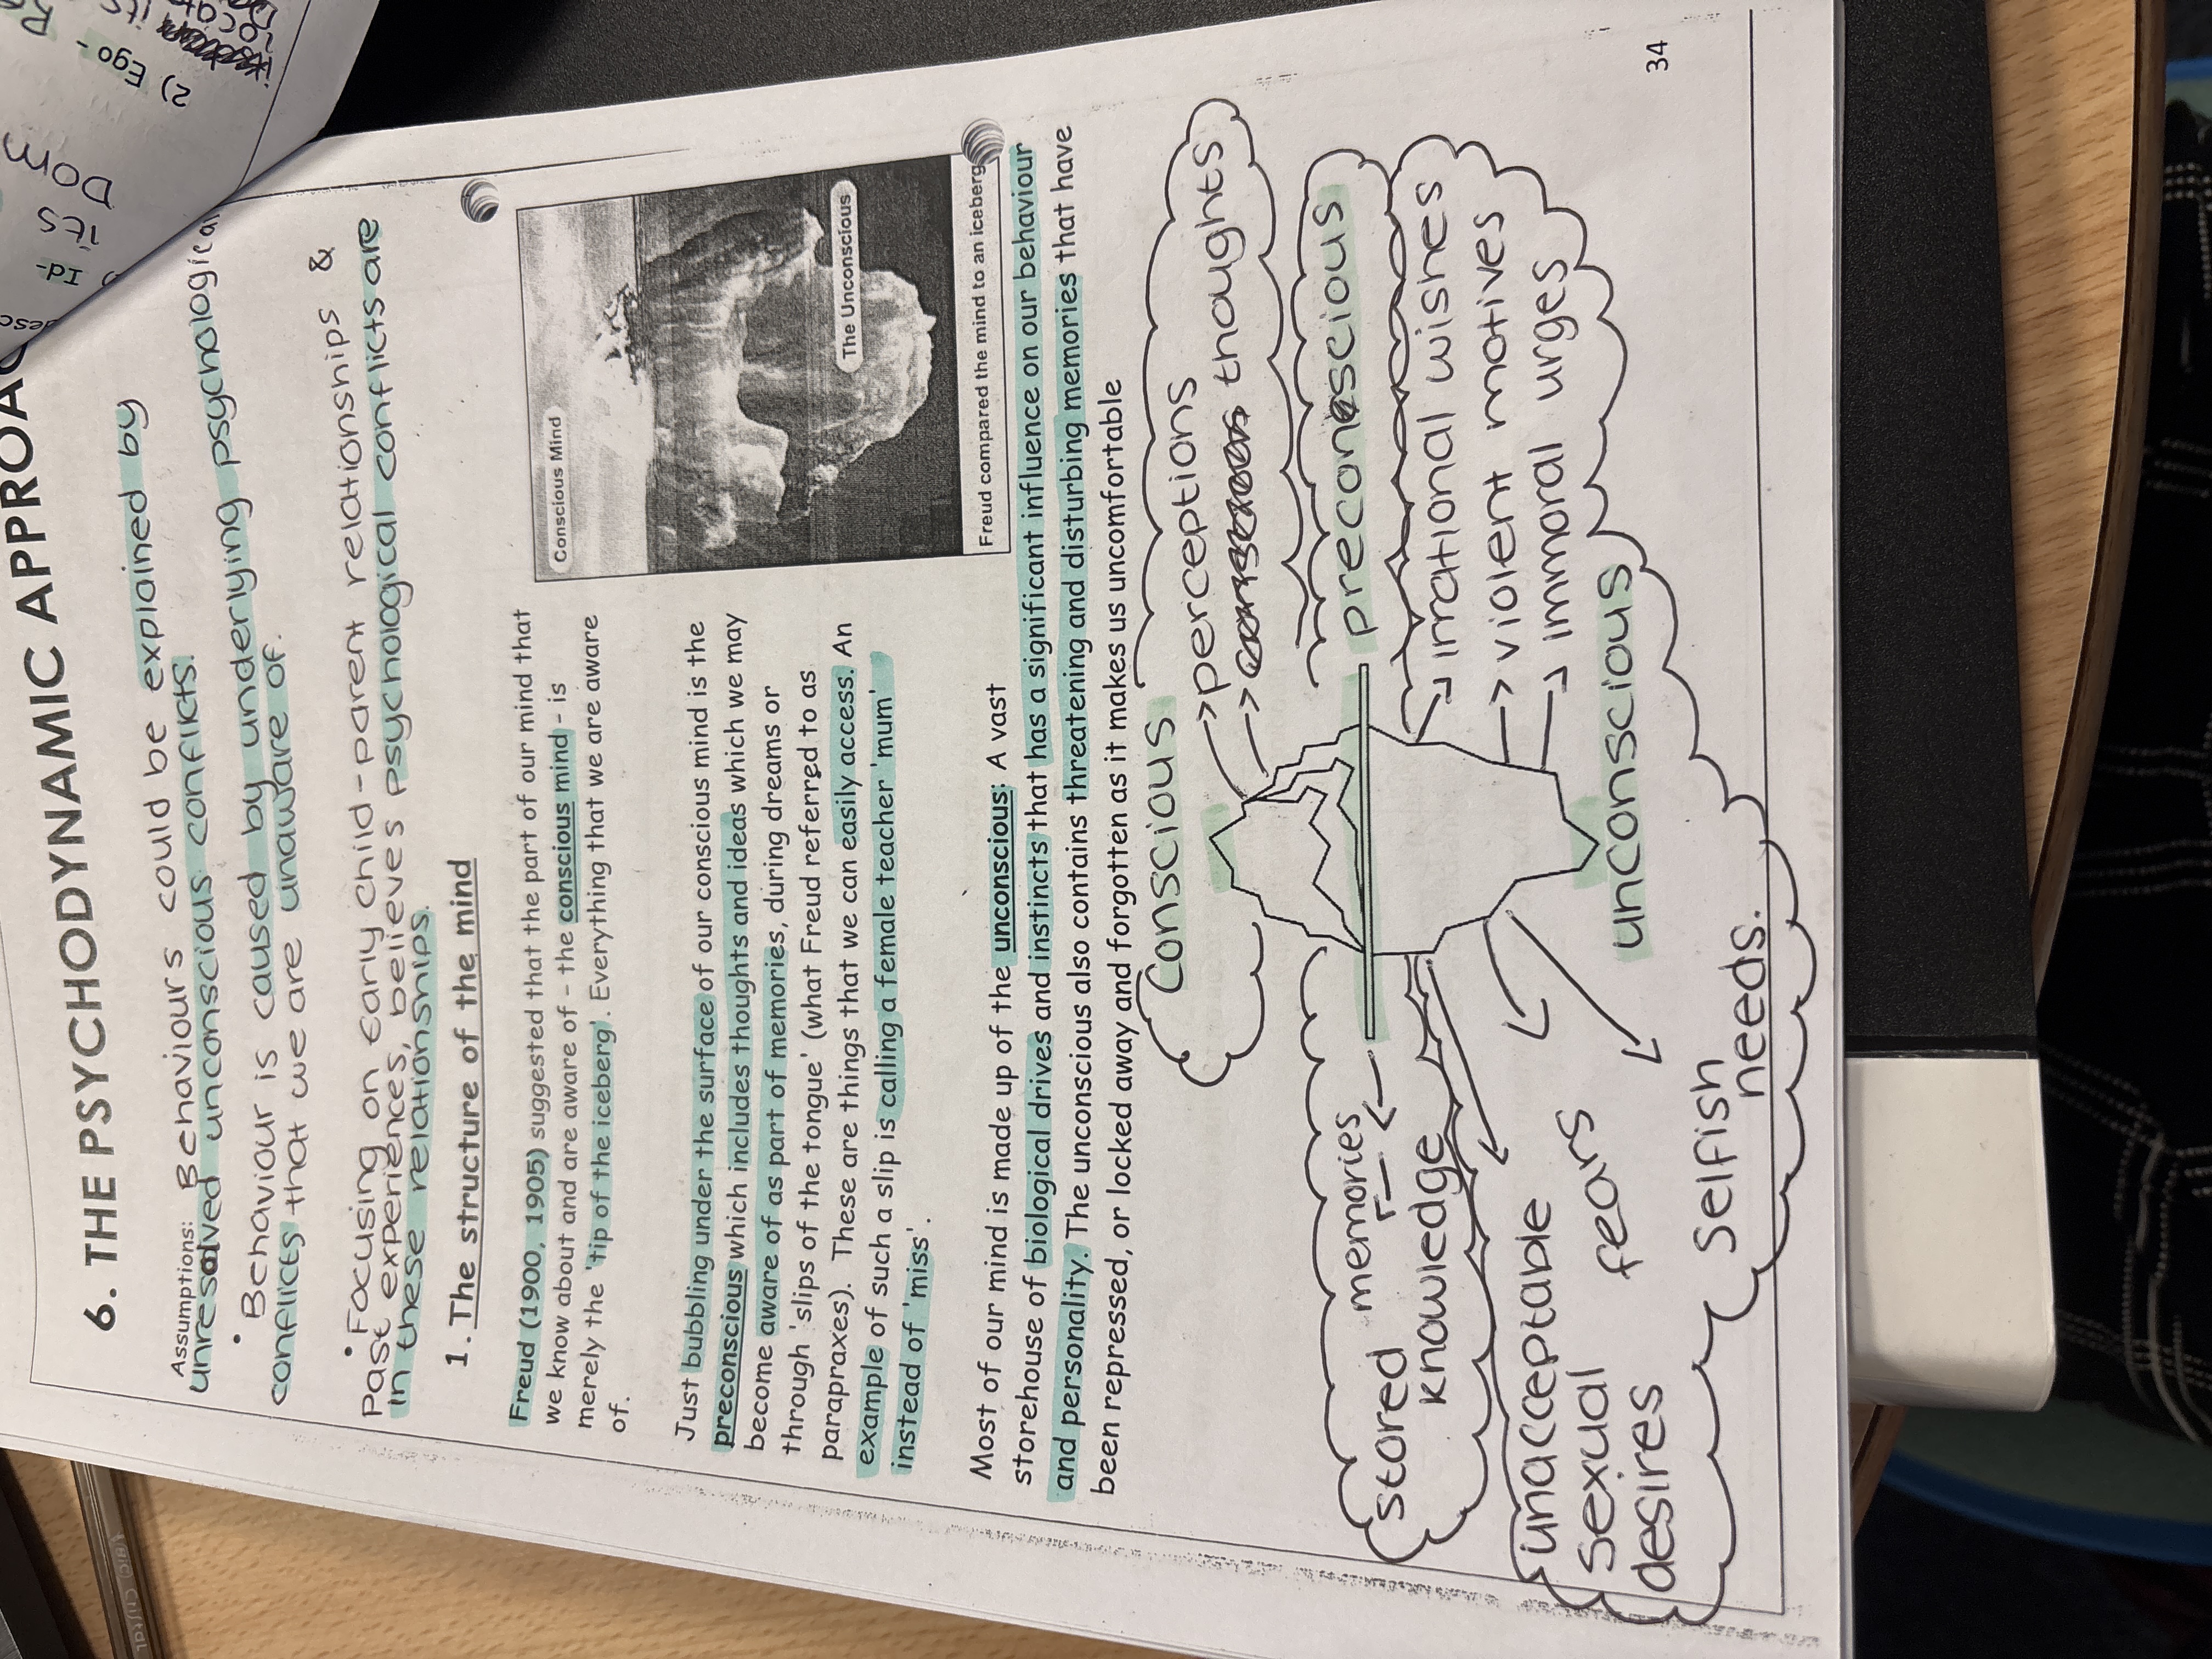 6. THE PSYCHODYNAMIC
Assumptions: Behaviours could be explained by
unresolved unconscious conflicts.
• Behaviour is caused by underlying psychological
conflicts that we are unaware of.
• Focusing on early child-parent relationships &
Past experiences, believes psychological conflicts are
in these relationships.
1. The structure of the mind
Freud (1900, 1905) suggested that the part of our mind that
we know about and are aware of - the conscious mind - is
merely the 'tip of the iceberg'. Everything that we are aware
of.
Conscious Mind
The Unconscious
Freud compared the mind to an iceberg
Just bubbling under the surface of our conscious mind is the
preconscious which includes thoughts and ideas which we may
become aware of as part of memories, during dreams or
through 'slips of the tongue' (what Freud referred to as
parapraxes). These are things that we can easily access. An
example of such a slip is calling a female teacher 'mum'
instead of 'miss'.
Most of our mind is made up of the unconscious: A vast
storehouse of biological drives and instincts that has a significant influence on our behaviour
and personality. The unconscious also contains threatening and disturbing memories that have
been repressed, or locked away and forgotten as it makes us uncomfortable
Conscious
perceptions
thoughts
preconscious
stored memories
knowledge
irrational wishes
violent motives
immoral urges
unconscious
unacceptable
sexual
desires
fears
selfish
needs.
34
2) Ego -
Id-
its
Dom